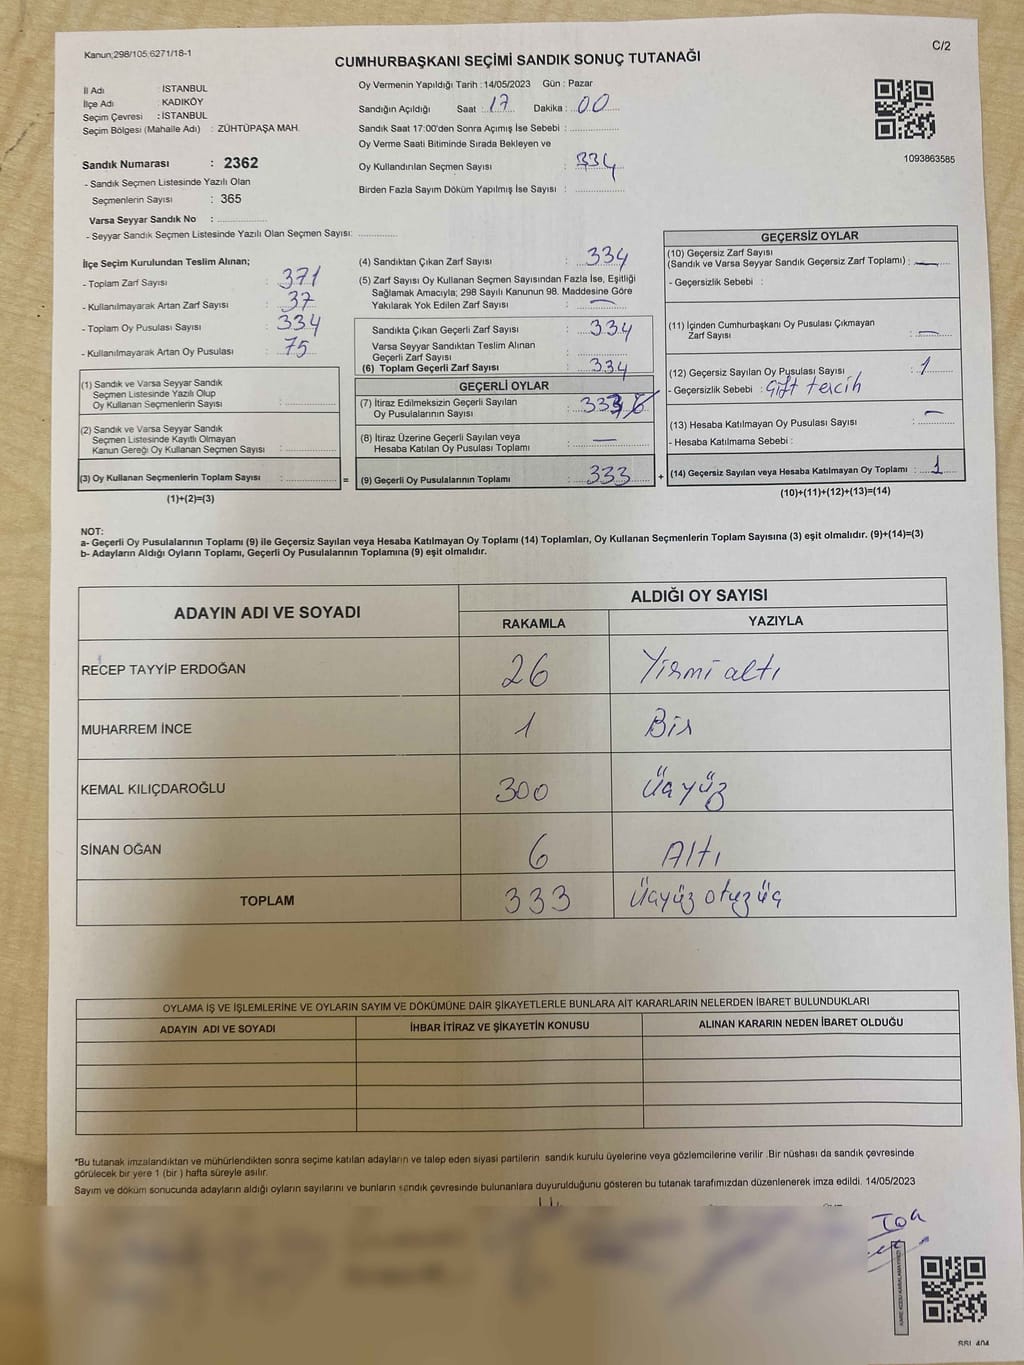 Kanun;298/105;6271/18-1
C/2
CUMHURBAŞKANI SEÇİMİ SANDIK SONUÇ TUTANAĞI
İl Adı : İSTANBUL
İlçe Adı : KADIKÖY
Seçim Çevresi : İSTANBUL
Seçim Bölgesi (Mahalle Adı) : ZÜHTÜPAŞA MAH.
Sandık Numarası : 2362
- Sandık Seçmen Listesinde Yazılı Olan
Seçmenlerin Sayısı : 365
Varsa Seyyar Sandık No :
- Seyyar Sandık Seçmen Listesinde Yazılı Olan Seçmen Sayısı:
Oy Vermenin Yapıldığı Tarih : 14/05/2023 Gün : Pazar
Sandığın Açıldığı Saat : 17 Dakika : 00
Sandık Saat 17:00'den Sonra Açımış İse Sebebi :
Oy Verme Saati Bitiminde Sırada Bekleyen ve
Oy Kullandırılan Seçmen Sayısı : 334
Birden Fazla Sayım Döküm Yapılmış İse Sayısı :
1093863585
İlçe Seçim Kurulundan Teslim Alınan;
- Toplam Zarf Sayısı : 371
- Kullanılmayarak Artan Zarf Sayısı : 37
- Toplam Oy Pusulası Sayısı : 334
- Kullanılmayarak Artan Oy Pusulası : 75
(1) Sandık ve Varsa Seyyar Sandık
Seçmen Listesinde Yazılı Olup
Oy Kullanan Seçmenlerin Sayısı :
(2) Sandık ve Varsa Seyyar Sandık
Seçmen Listesinde Kayıtlı Olmayan
Kanun Gereği Oy Kullanan Seçmen Sayısı :
(3) Oy Kullanan Seçmenlerin Toplam Sayısı :
(1)+(2)=(3)
(4) Sandıktan Çıkan Zarf Sayısı : 334
(5) Zarf Sayısı Oy Kullanan Seçmen Sayısından Fazla İse, Eşitliği
Sağlamak Amacıyla; 298 Sayılı Kanunun 98. Maddesine Göre
Yakılarak Yok Edilen Zarf Sayısı : —
Sandıkta Çıkan Geçerli Zarf Sayısı : 334
Varsa Seyyar Sandıktan Teslim Alınan
Geçerli Zarf Sayısı :
(6) Toplam Geçerli Zarf Sayısı : 334
GEÇERLİ OYLAR
(7) İtiraz Edilmeksizin Geçerli Sayılan
Oy Pusulalarının Sayısı : 333
(8) İtiraz Üzerine Geçerli Sayılan veya
Hesaba Katılan Oy Pusulası Toplamı : —
= (9) Geçerli Oy Pusulalarının Toplamı : 333 +
GEÇERSİZ OYLAR
(10) Geçersiz Zarf Sayısı
(Sandık ve Varsa Seyyar Sandık Geçersiz Zarf Toplamı) : —
- Geçersizlik Sebebi :
(11) İçinden Cumhurbaşkanı Oy Pusulası Çıkmayan
Zarf Sayısı : —
(12) Geçersiz Sayılan Oy Pusulası Sayısı : 1
- Geçersizlik Sebebi : Çift tercih
(13) Hesaba Katılmayan Oy Pusulası Sayısı : —
- Hesaba Katılmama Sebebi :
(14) Geçersiz Sayılan veya Hesaba Katılmayan Oy Toplamı : 1
(10)+(11)+(12)+(13)=(14)
NOT:
a- Geçerli Oy Pusulalarının Toplamı (9) ile Geçersiz Sayılan veya Hesaba Katılmayan Oy Toplamı (14) Toplamları, Oy Kullanan Seçmenlerin Toplam Sayısına (3) eşit olmalıdır. (9)+(14)=(3)
b- Adayların Aldığı Oyların Toplamı, Geçerli Oy Pusulalarının Toplamına (9) eşit olmalıdır.
ADAYIN ADI VE SOYADI ALDIĞI OY SAYISI
RAKAMLA YAZIYLA
RECEP TAYYİP ERDOĞAN 26 Yirmi altı
MUHARREM İNCE 1 Bir
KEMAL KILIÇDAROĞLU 300 Üçyüz
SİNAN OĞAN 6 Altı
TOPLAM 333 Üçyüz otuzüç
OYLAMA İŞ VE İŞLEMLERİNE VE OYLARIN SAYIM VE DÖKÜMÜNE DAİR ŞİKAYETLERLE BUNLARA AİT KARARLARIN NELERDEN İBARET BULUNDUKLARI
ADAYIN ADI VE SOYADI İHBAR İTİRAZ VE ŞİKAYETİN KONUSU ALINAN KARARIN NEDEN İBARET OLDUĞU
*Bu tutanak imzalandıktan ve mühürlendikten sonra seçime katılan adayların ve talep eden siyasi partilerin sandık kurulu üyelerine veya gözlemcilerine verilir .Bir nüshası da sandık çevresinde
görülecek bir yere 1 (bir ) hafta süreyle asılır.
Sayım ve döküm sonucunda adayların aldığı oyların sayılarını ve bunların sandık çevresinde bulunanlara duyurulduğunu gösteren bu tutanak tarafımızdan düzenlenerek imza edildi. 14/05/2023